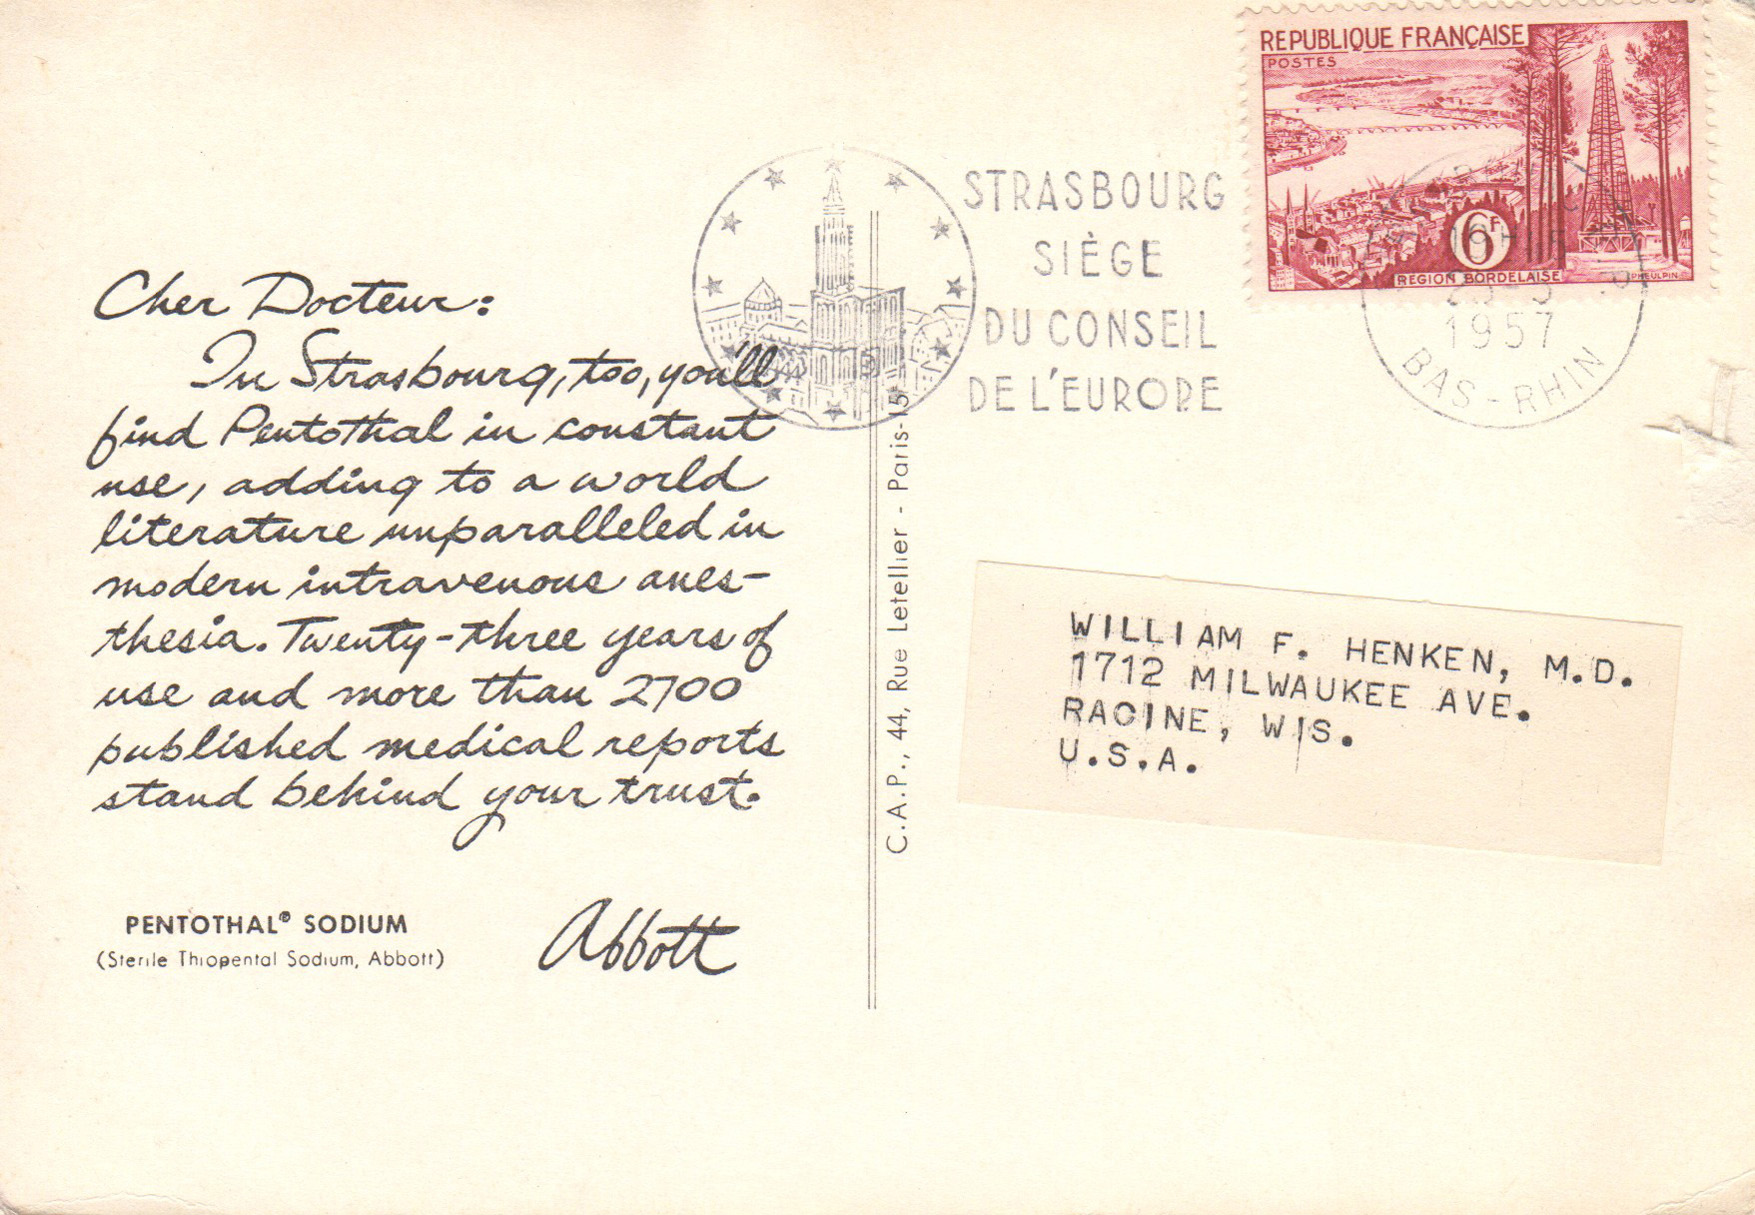 Cher Docteur:
In Strasbourg, too, you'll
find Pentothal in constant
use, adding to a world
literature unparalleled in
modern intravenous anes-
thesia. Twenty-three years of
use and more than 2700
published medical reports
stand behind your trust.
PENTOTHAL® SODIUM
(Sterile Thiopental Sodium, Abbott)
Abbott
C.A.P., 44, Rue Letellier - Paris-15e
STRASBOURG
SIÈGE
DU CONSEIL
DE L'EUROPE
REPUBLIQUE FRANÇAISE
POSTES
6F
REGION BORDELAISE
PHEULPIN
1957
BAS-RHIN
WILLIAM F. HENKEN, M.D.
1712 MILWAUKEE AVE.
RACINE, WIS.
U.S.A.